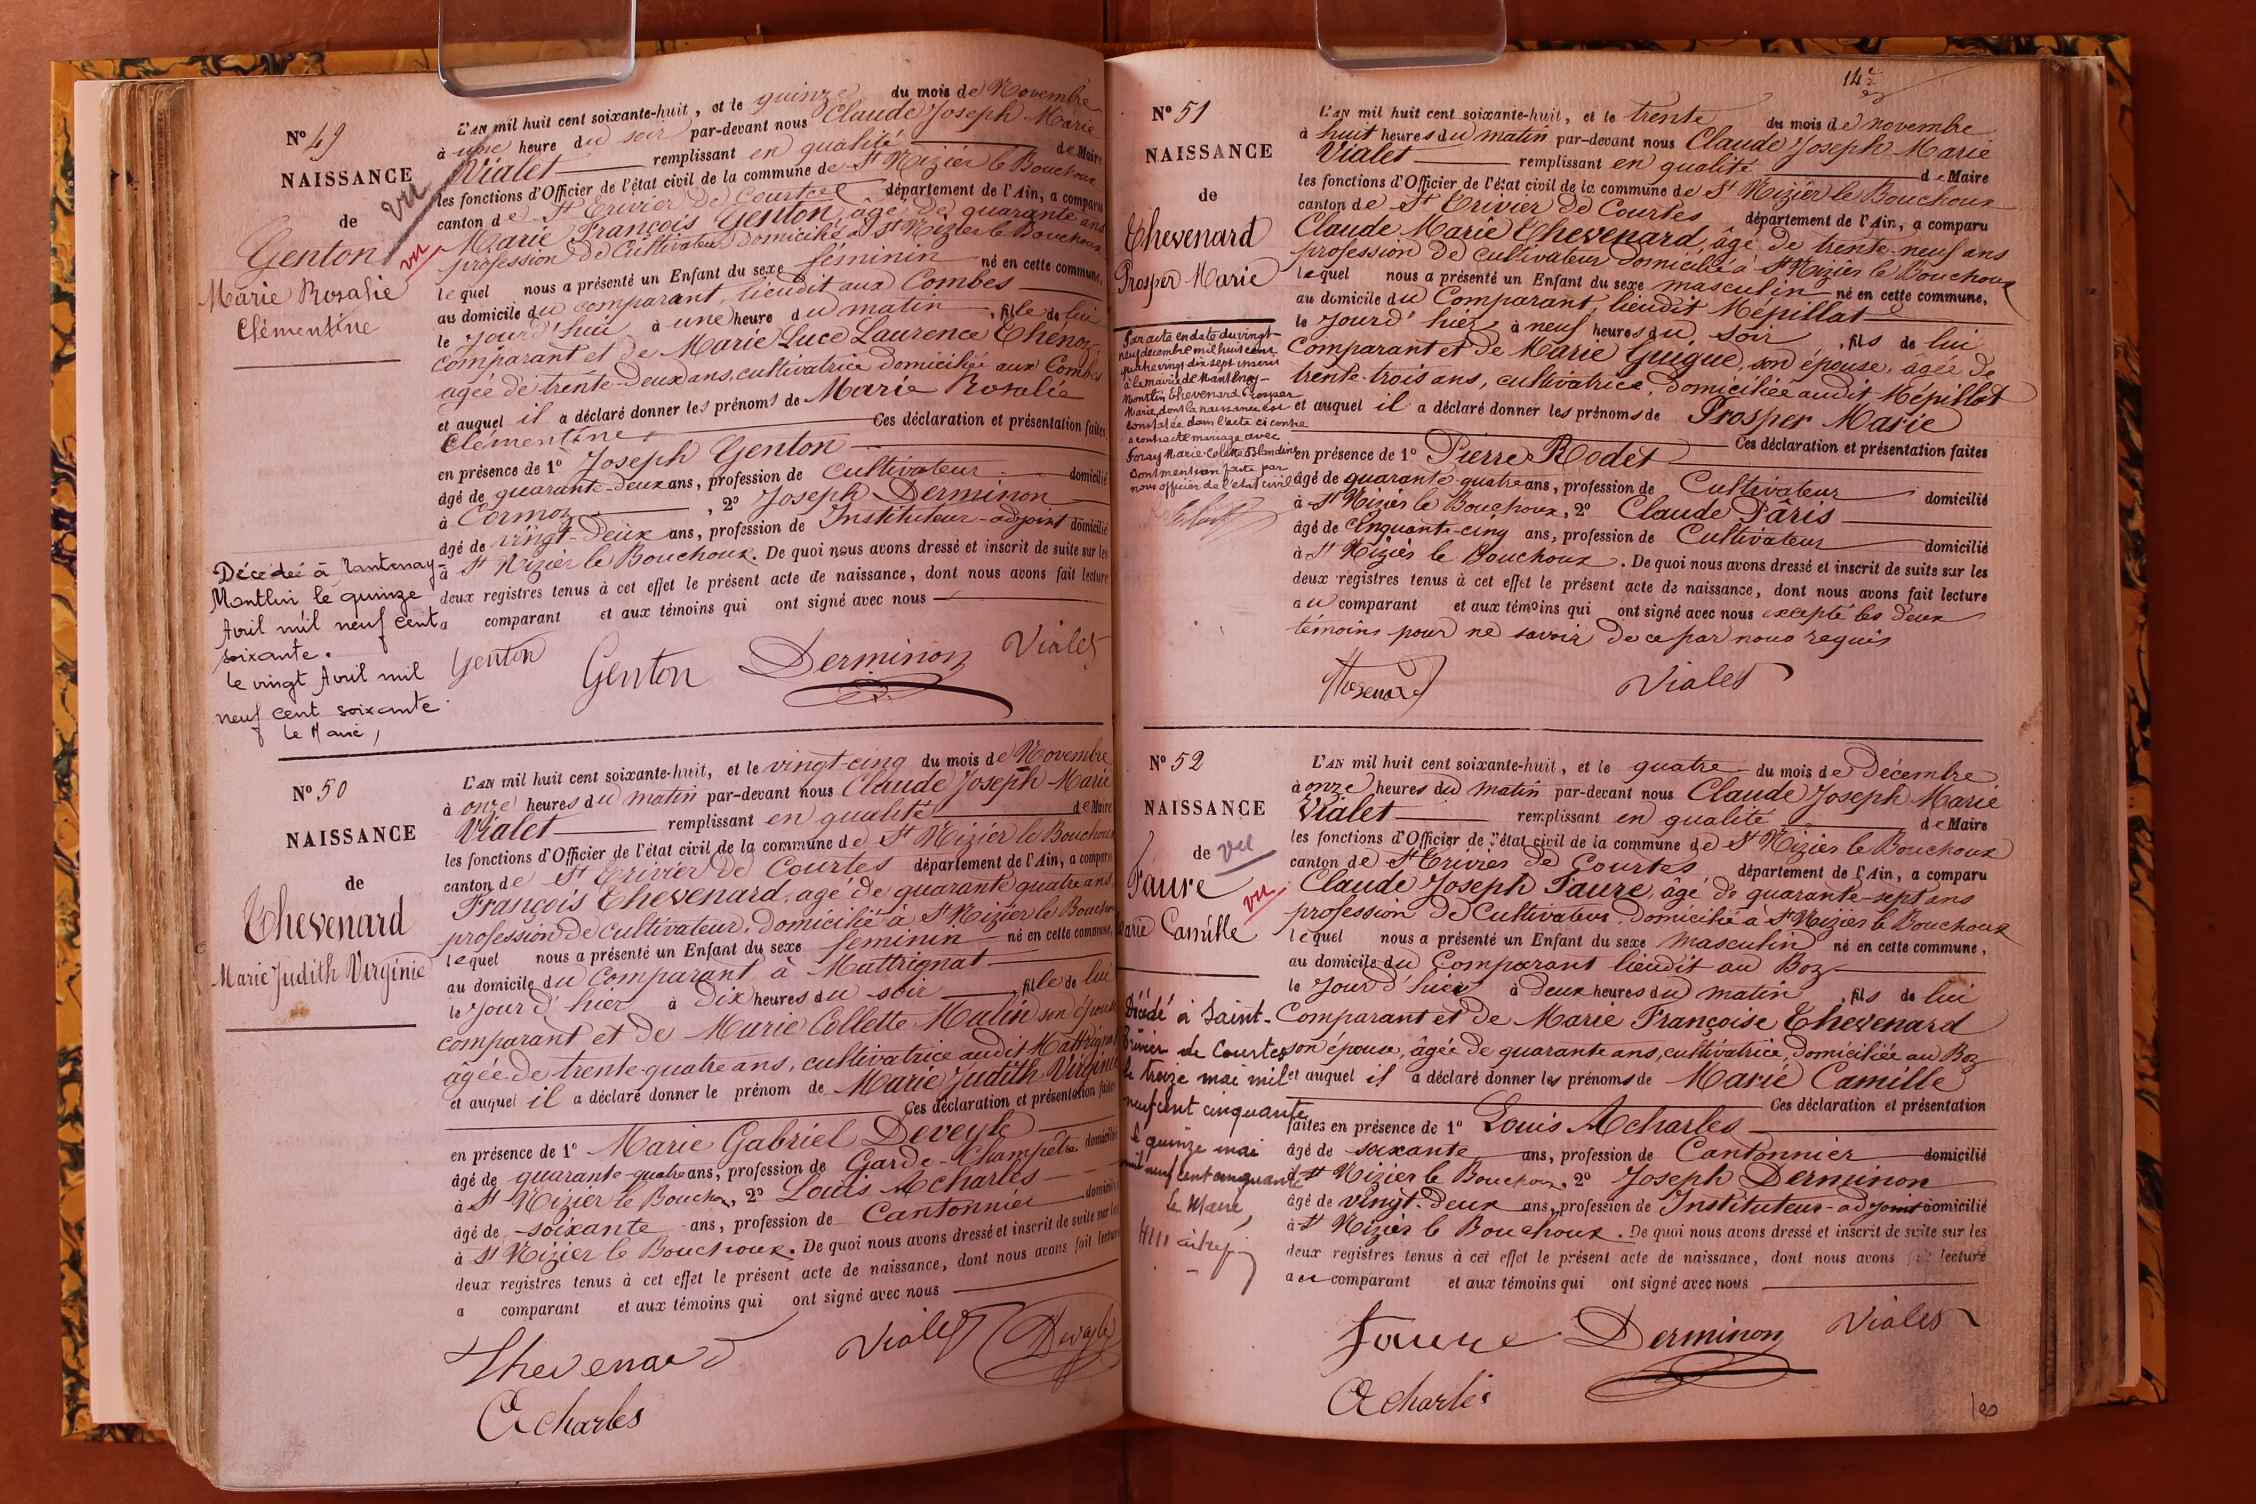 N° 49
NAISSANCE
de
Genton
Marie Rosalie
Clémentine
vu
vu
Décédée à Mantenay-
Montlin le quinze
Avril mil neuf cent
soixante.
Le vingt Avril mil
neuf cent soixante.
Le Maire,
L'AN mil huit cent soixante-huit, et le quinze du mois de Novembre
à une heure du soir par-devant nous Claude Joseph Marie
Vialet remplissant en qualité de Maire
les fonctions d'Officier de l'état civil de la commune de St Nizier le Bouchoux
canton de St Trivier de Courtes département de l'Ain, a comparu
Marie François Genton, âgé de quarante ans
profession de Cultivateur domicilié à St Nizier le Bouchoux
lequel nous a présenté un Enfant du sexe féminin né en cette commune,
au domicile du comparant, lieudit aux Combes
le jourd'hui à une heure du matin, fille de lui
comparant et de Marie Luce Laurence Thénoz
agée de trente-deux ans, cultivatrice domiciliée aux Combes
et auquel il a déclaré donner les prénoms de Marie Rosalie
Clémentine Ces déclaration et présentation faites
en présence de 1° Joseph Genton
âgé de quarante-deux ans, profession de cultivateur domicilié
à Cormoz, 2° Joseph Derminon
âgé de vingt-deux ans, profession de Instituteur-adjoint domicilié
à St Nizier le Bouchoux. De quoi nous avons dressé et inscrit de suite sur les
deux registres tenus à cet effet le présent acte de naissance, dont nous avons fait lecture
a comparant et aux témoins qui ont signé avec nous
Genton Genton Derminon Vialet
N° 50
NAISSANCE
de
Thevenard
Marie Judith Virginie
L'AN mil huit cent soixante-huit, et le vingt-cinq du mois de Novembre
à onze heures du matin par-devant nous Claude Joseph Marie
Vialet remplissant en qualité de Maire
les fonctions d'Officier de l'état civil de la commune de St Nizier le Bouchoux
canton de St Trivier de Courtes département de l'Ain, a comparu
François Thevenard, agé de quarante quatre ans
profession de cultivateur, domicilié à St Nizier le Bouchoux
lequel nous a présenté un Enfant du sexe feminin né en cette commune,
au domicile du comparant à Mattrignat
le jour d'hier à dix heures du soir, fille de lui
comparant et de Marie Collette Matin son épouse
âgée de trente-quatre ans, cultivatrice audit Mattrignat
et auquel il a déclaré donner le prénom de Marie Judith Virginie
Ces déclaration et présentation faites
en présence de 1° Marie Gabriel Deveyle
âgé de quarante-quatre ans, profession de Garde-Champêtre domicilié
à St Nizier le Bouchoux, 2° Louis Acharles
âgé de soixante ans, profession de Cantonnier domicilié
à St Nizier le Bouchoux. De quoi nous avons dressé et inscrit de suite sur les
deux registres tenus à cet effet le présent acte de naissance, dont nous avons fait lecture
a comparant et aux témoins qui ont signé avec nous
Thevenard Vialet Deveyle
Acharles
14e
N° 51
NAISSANCE
de
Thevenard
Prosper Marie
Par acte en date du vingt-
neuf decembre mil huit cent
quatre vingt dix sept inscrit
à la mairie de Mantenay-
Montlin Thevenard Prosper
Marie, dont la naissance est
constatée dans l'acte ci contre
a contracté mariage avec
Foray Marie Colette Blandine
Dont mention faite par
nous officier de l'état civil
L'AN mil huit cent soixante-huit, et le trente du mois de novembre
à huit heures du matin par-devant nous Claude Joseph Marie
Vialet remplissant en qualité de Maire
les fonctions d'Officier de l'état civil de la commune de St Nizier le Bouchoux
canton de St Trivier de Courtes département de l'Ain, a comparu
Claude Marie Thevenard, âgé de trente-neuf ans
profession de cultivateur domicilié à St Nizier le Bouchoux
lequel nous a présenté un Enfant du sexe masculin né en cette commune,
au domicile du Comparant, lieudit Mépillat
le jour d'hier à neuf heures du soir, fils de lui
comparant et de Marie Guigue, son épouse, âgée de
trente-trois ans, cultivatrice, domiciliée audit Mépillat
et auquel il a déclaré donner les prénoms de Prosper Marie
Ces déclaration et présentation faites
en présence de 1° Pierre Rodet
âgé de quarante-quatre ans, profession de Cultivateur domicilié
à St Nizier le Bouchoux, 2° Claude Pâris
âgé de Cinquante-cinq ans, profession de Cultivateur domicilié
à St Nizier le Bouchoux. De quoi nous avons dressé et inscrit de suite sur les
deux registres tenus à cet effet le présent acte de naissance, dont nous avons fait lecture
au comparant et aux témoins qui ont signé avec nous excepté les deux
témoins pour ne savoir de ce par nous requis
Thevenard Vialet
N° 52
NAISSANCE
de vu
Faure
vu
Marie Camille
Décédé à Saint-
Trivier de Courtes
le treize mai mil
neuf cent cinquante
le quinze mai
mil neuf cent cinquante
Le Maire,
L'AN mil huit cent soixante-huit, et le quatre du mois de Décembre
à onze heures du matin par-devant nous Claude Joseph Marie
Vialet remplissant en qualité de Maire
les fonctions d'Officier de l'état civil de la commune de St Nizier le Bouchoux
canton de St Trivier de Courtes département de l'Ain, a comparu
Claude Joseph Faure, âgé de quarante-sept ans
profession de Cultivateur, domicilié à St Nizier le Bouchoux
lequel nous a présenté un Enfant du sexe masculin né en cette commune,
au domicile du Comparant lieudit au Boz
le jour d'hier à deux heures du matin, fils de lui
Comparant et de Marie Françoise Thevenard
son épouse, âgée de quarante ans, cultivatrice, domiciliée au Boz
et auquel il a déclaré donner les prénoms de Marie Camille
Ces déclaration et présentation
faites en présence de 1° Louis Acharles
âgé de soixante ans, profession de Cantonnier domicilié
à St Nizier le Bouchoux, 2° Joseph Derminon
âgé de vingt-deux ans, profession de Instituteur-adjoint domicilié
à St Nizier le Bouchoux. De quoi nous avons dressé et inscrit de suite sur les
deux registres tenus à cet effet le présent acte de naissance, dont nous avons fait lecture
au comparant et aux témoins qui ont signé avec nous
Faure Derminon Vialet
Acharles